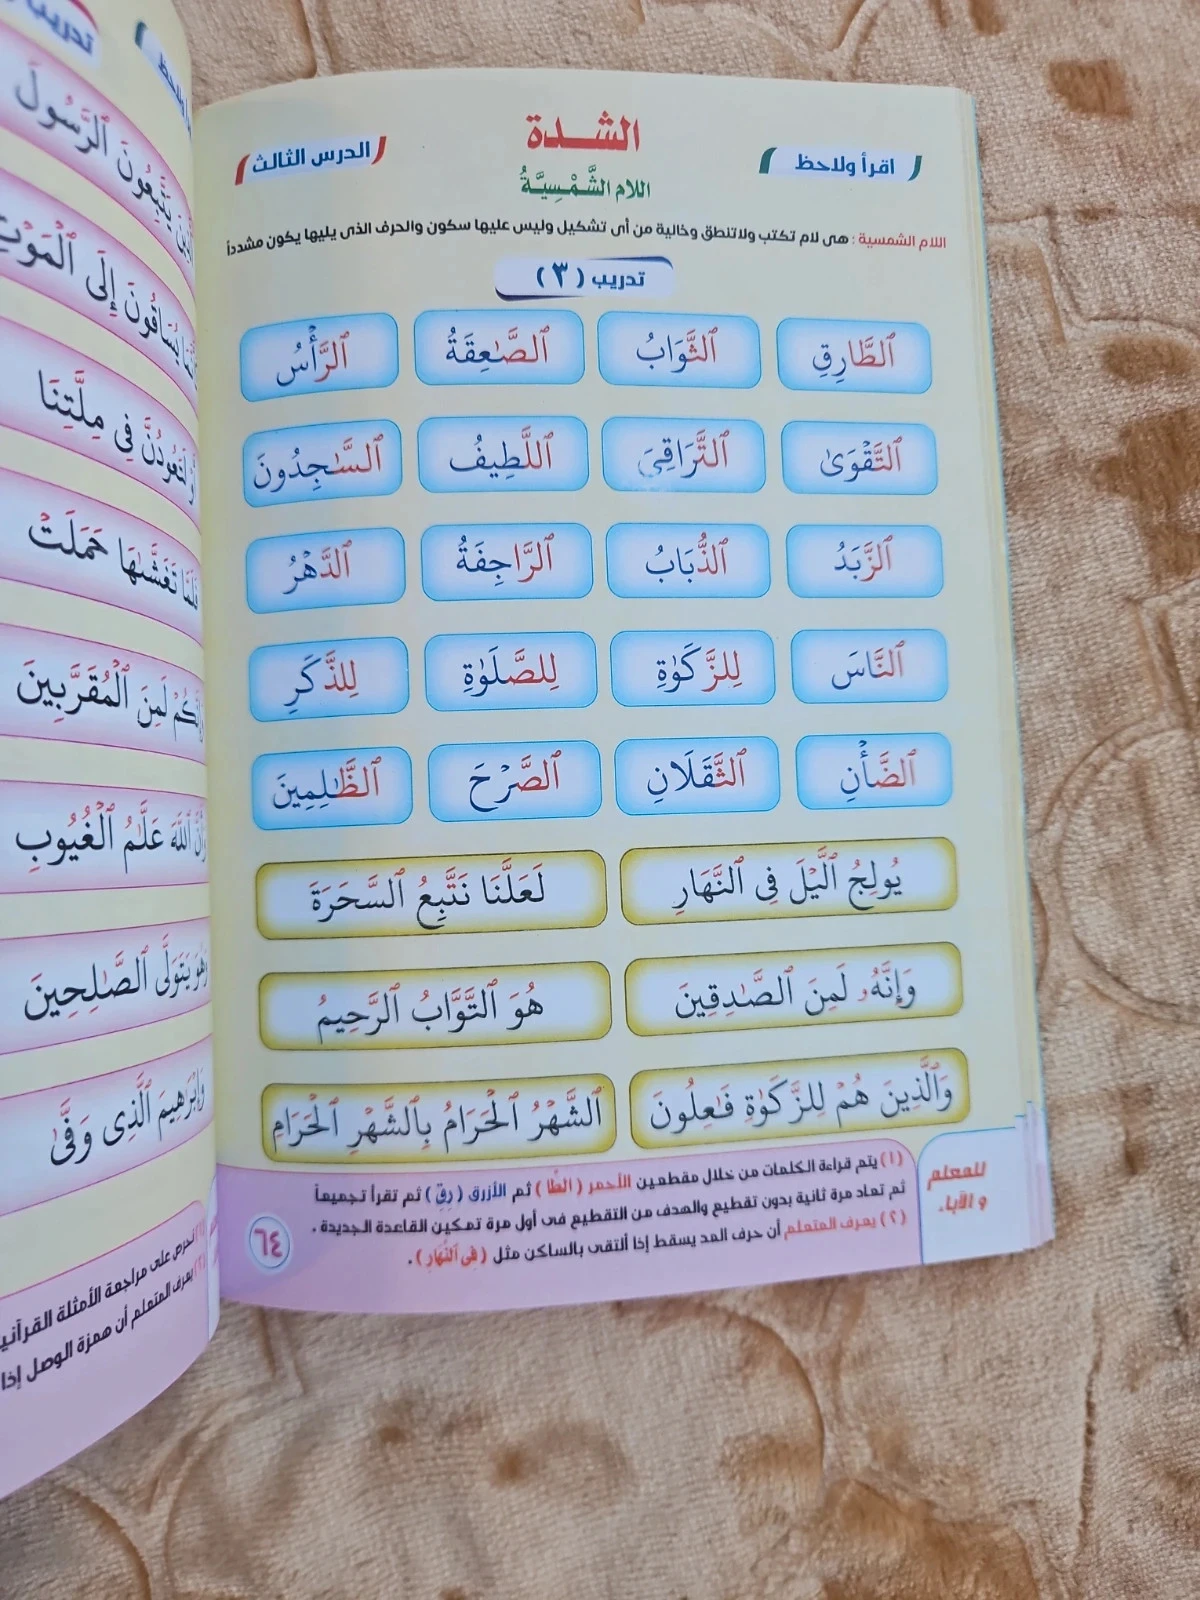 الشدة
اقرأ ولاحظ
الدرس الثالث
اللام الشَّمْسِيَّةُ
اللام الشمسية : هى لام تكتب ولاتنطق وخالية من أى تشكيل وليس عليها سكون والحرف الذى يليها يكون مشدداً
تدريب (٣)
ٱلطَّارِقِ ٱلثَّوَابُ ٱلصَّٰعِقَةُ ٱلرَّأْسُ
ٱلتَّقْوَىٰ ٱلتَّرَاقِىَ ٱللَّطِيفُ ٱلسَّٰجِدُونَ
ٱلزَّبَدُ ٱلذُّبَابُ ٱلرَّاجِفَةُ ٱلدَّهْرُ
ٱلنَّاسَ لِلزَّكَوٰةِ لِلصَّلَوٰةِ لِلذَّكَرِ
ٱلضَّأْنِ ٱلثَّقَلَانِ ٱلصَّرْحَ ٱلظَّٰلِمِينَ
يُولِجُ ٱلَّيْلَ فِى ٱلنَّهَارِ لَعَلَّنَا نَتَّبِعُ ٱلسَّحَرَةَ
وَإِنَّهُۥ لَمِنَ ٱلصَّٰدِقِينَ هُوَ ٱلتَّوَّابُ ٱلرَّحِيمُ
وَٱلَّذِينَ هُمْ لِلزَّكَوٰةِ فَٰعِلُونَ ٱلشَّهْرُ ٱلْحَرَامُ بِٱلشَّهْرِ ٱلْحَرَامِ
للمعلم
و الآباء
(١) يتم قراءة الكلمات من خلال مقطعين الأحمر (الطَّا) ثم الأزرق (رِقِ) ثم تقرأ تجميعاً
ثم تعاد مرة ثانية بدون تقطيع والهدف من التقطيع فى أول مرة تمكين القاعدة الجديدة .
(٢) يعرف المتعلم أن حرف المد يسقط إذا ألتقى بالساكن مثل (فِى ٱلنَّهَارِ) .
٦٤
تدريب
يَتَّبِعُونَ ٱلرَّسُولَ
يُسَاقُونَ إِلَى ٱلْمَوْتِ
لَتَعُودُنَّ فِى مِلَّتِنَا
فَلَمَّا تَغَشَّىٰهَا حَمَلَتْ
لَمِنَ ٱلْمُقَرَّبِينَ
ٱللَّهَ عَلَّٰمُ ٱلْغُيُوبِ
وَهُوَ يَتَوَلَّى ٱلصَّٰلِحِينَ
وَإِبْرَٰهِيمَ ٱلَّذِى وَفَّىٰٓ
احرص على مراجعة الأمثلة
يعرف المتعلم أن همزة الوصل إذا